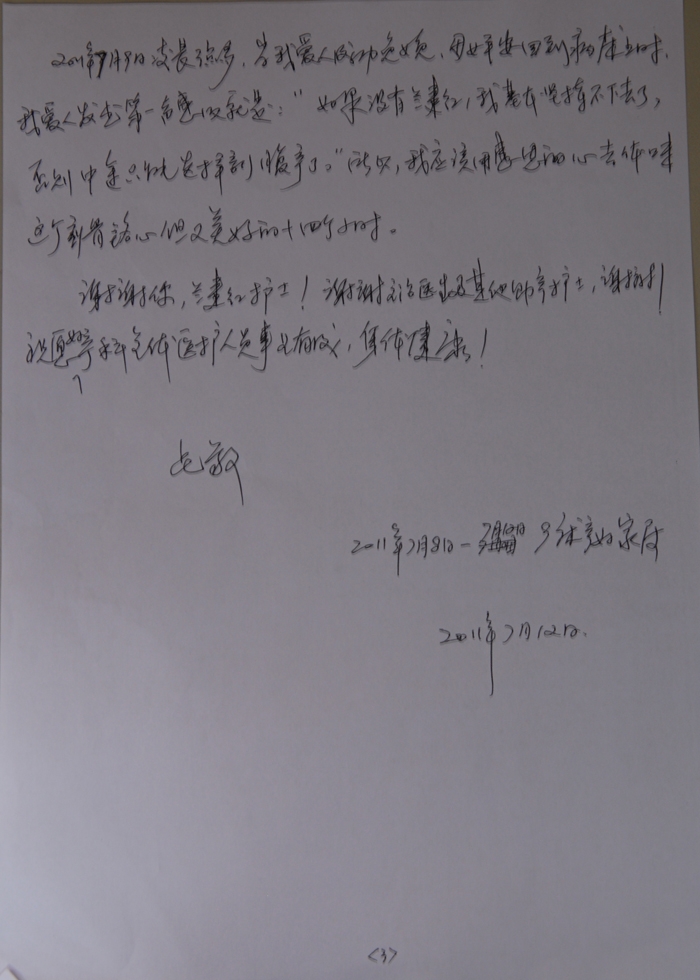 2011年7月9日凌晨4点多，当我爱人成功分娩，母婴平安回到病床上时，
我爱人发出第一句感叹就是：“如果没有兰建红，我基本坚持不下去了，
否则中途只能选择剖腹产了。”所以，我应该用感恩的心去体味
这个刻骨铭心但又美好的十四个小时。
谢谢你，兰建红护士！谢谢主治医生及其他助产护士，谢谢！
祝愿产科全体医护人员事业有成，身体健康！
此致
2011年7月8日－ 产妇家属
2011年7月12日.
<3>